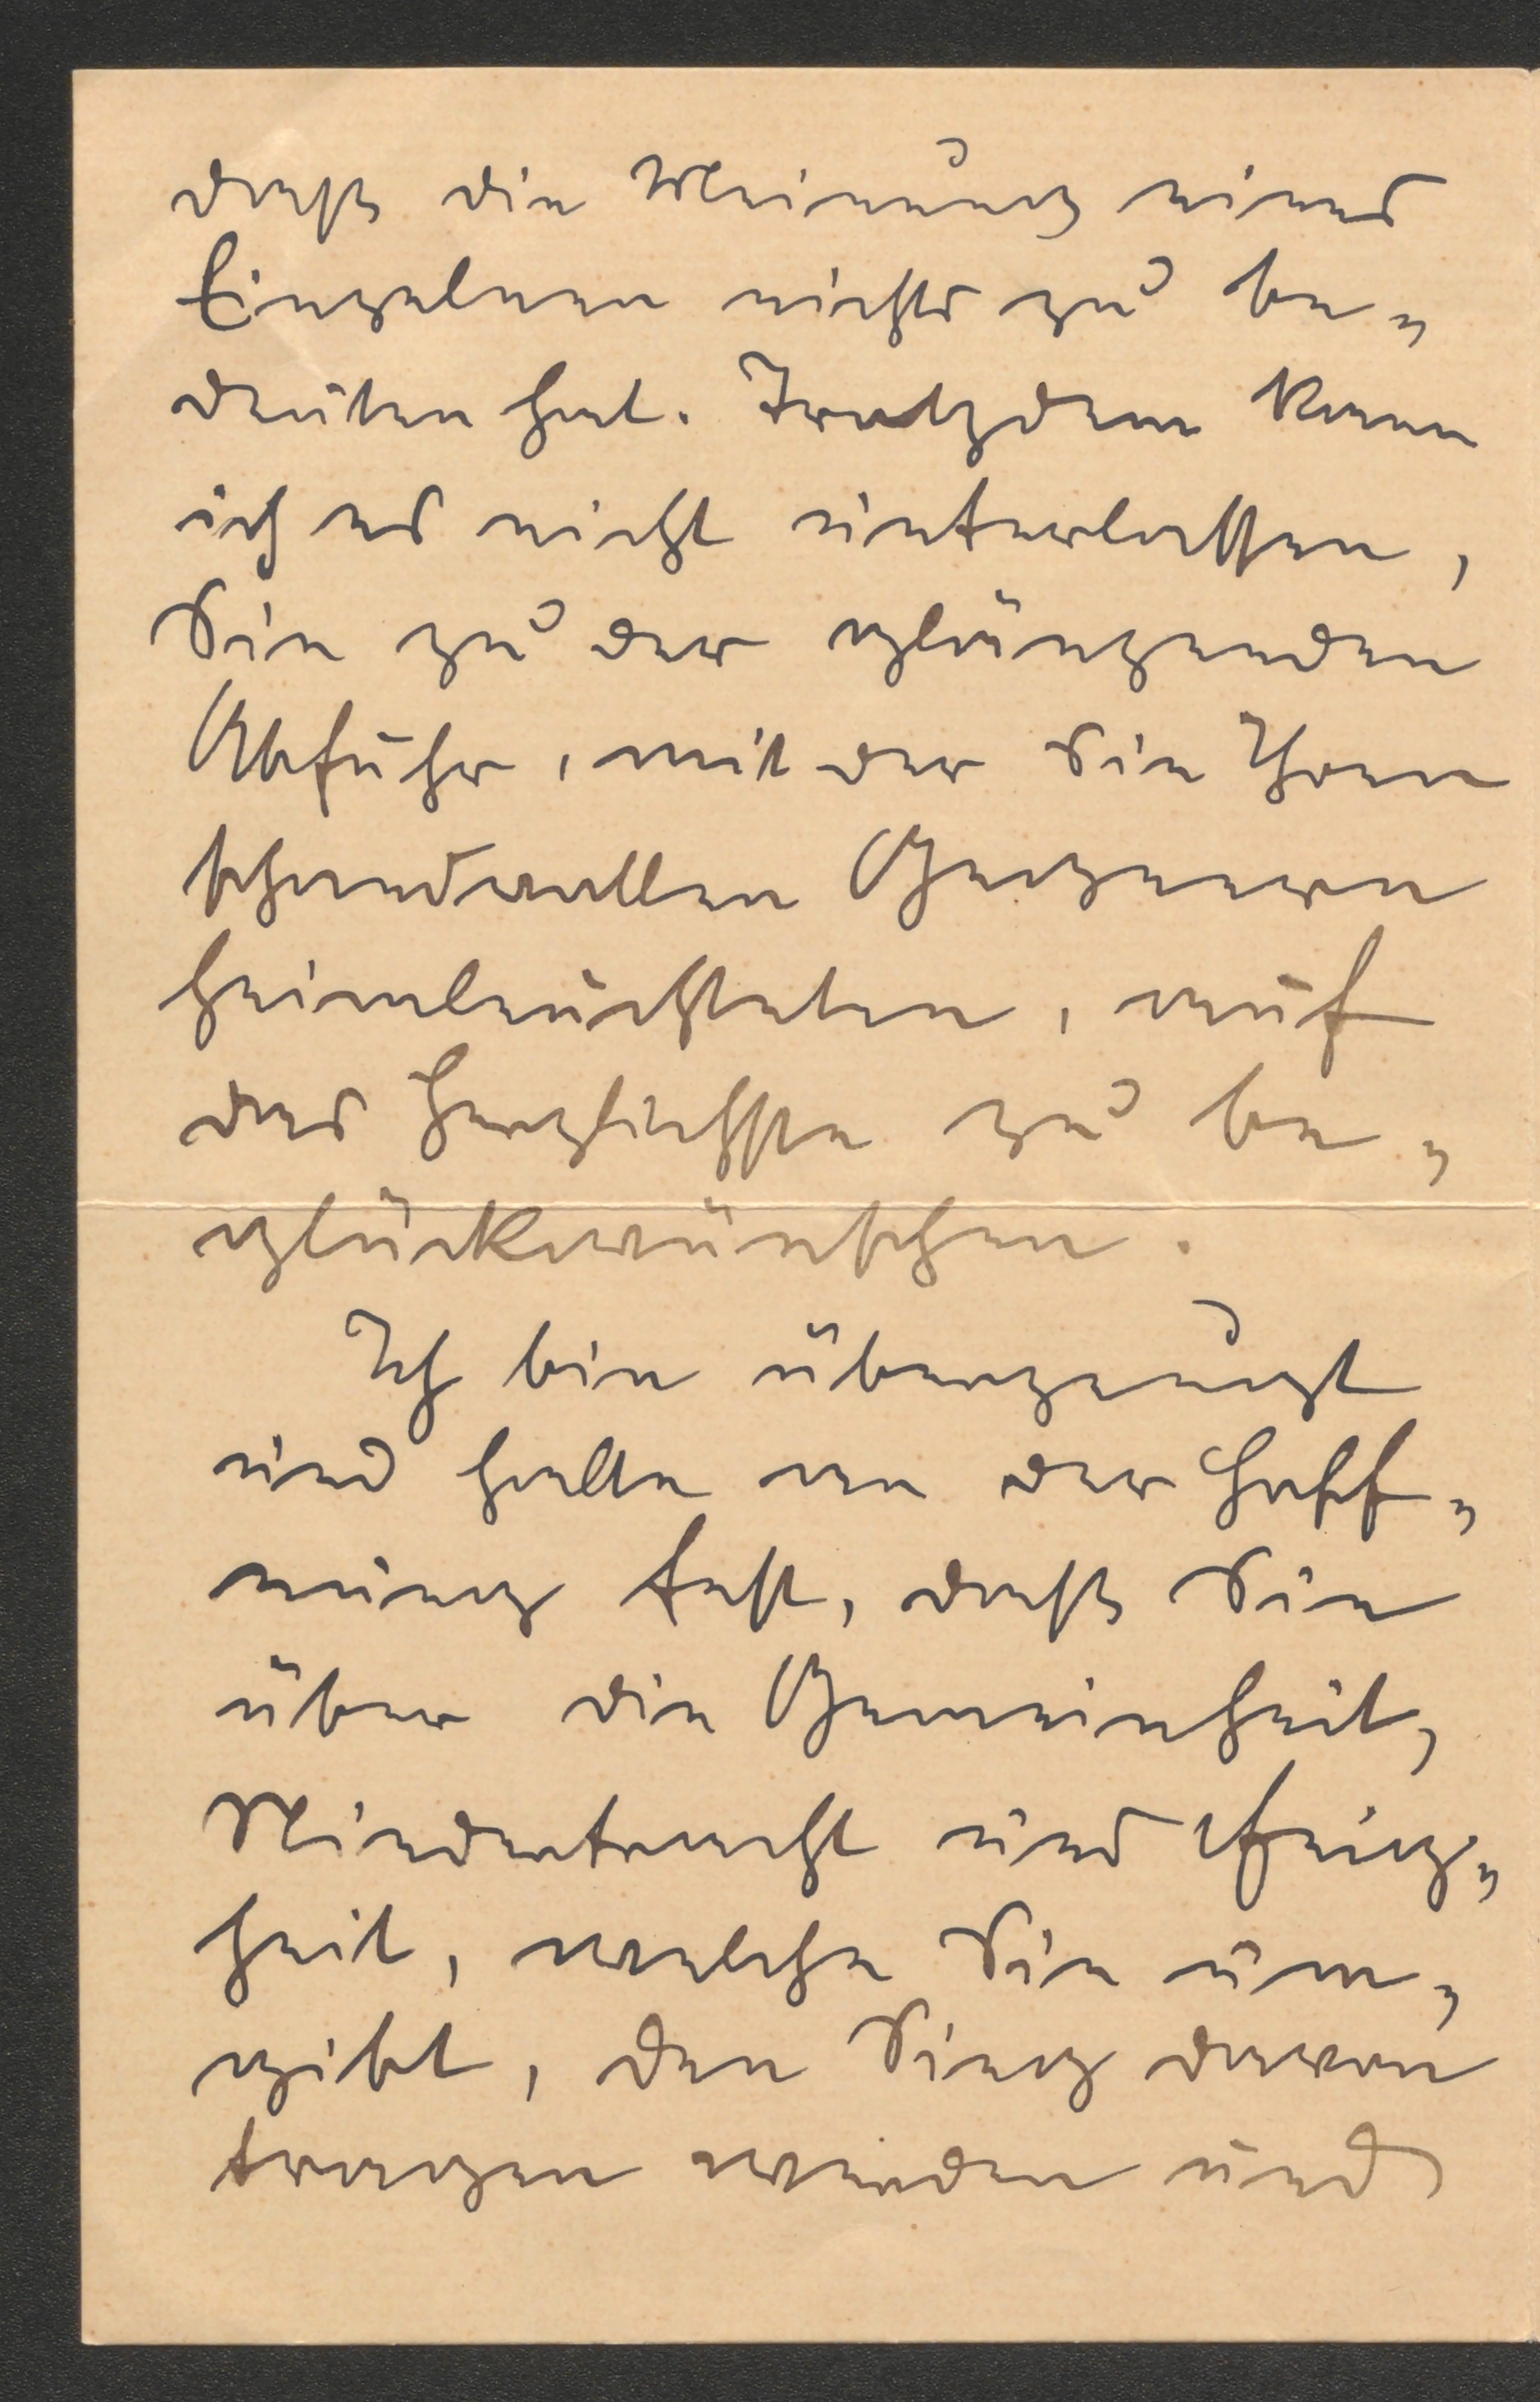 daß die Meinung eines
Einzelnen nichts zu be„
deuten hat. Trotzdem kann
ich es nicht unterlassen,
Sie zu der glänzenden
Abfuhr, mit der Sie Ihren
schandvollen Gegnern
heimleuchteten, auf
das Herzlichste zu be„
glückwünschen.
Ich bin überzeugt
und halte an der Hoff„
nung fest, daß Sie
über die Gemeinheit,
Niedertracht und Feig„
heit, welche Sie um„
gibt, den Sieg davon
tragen werden und